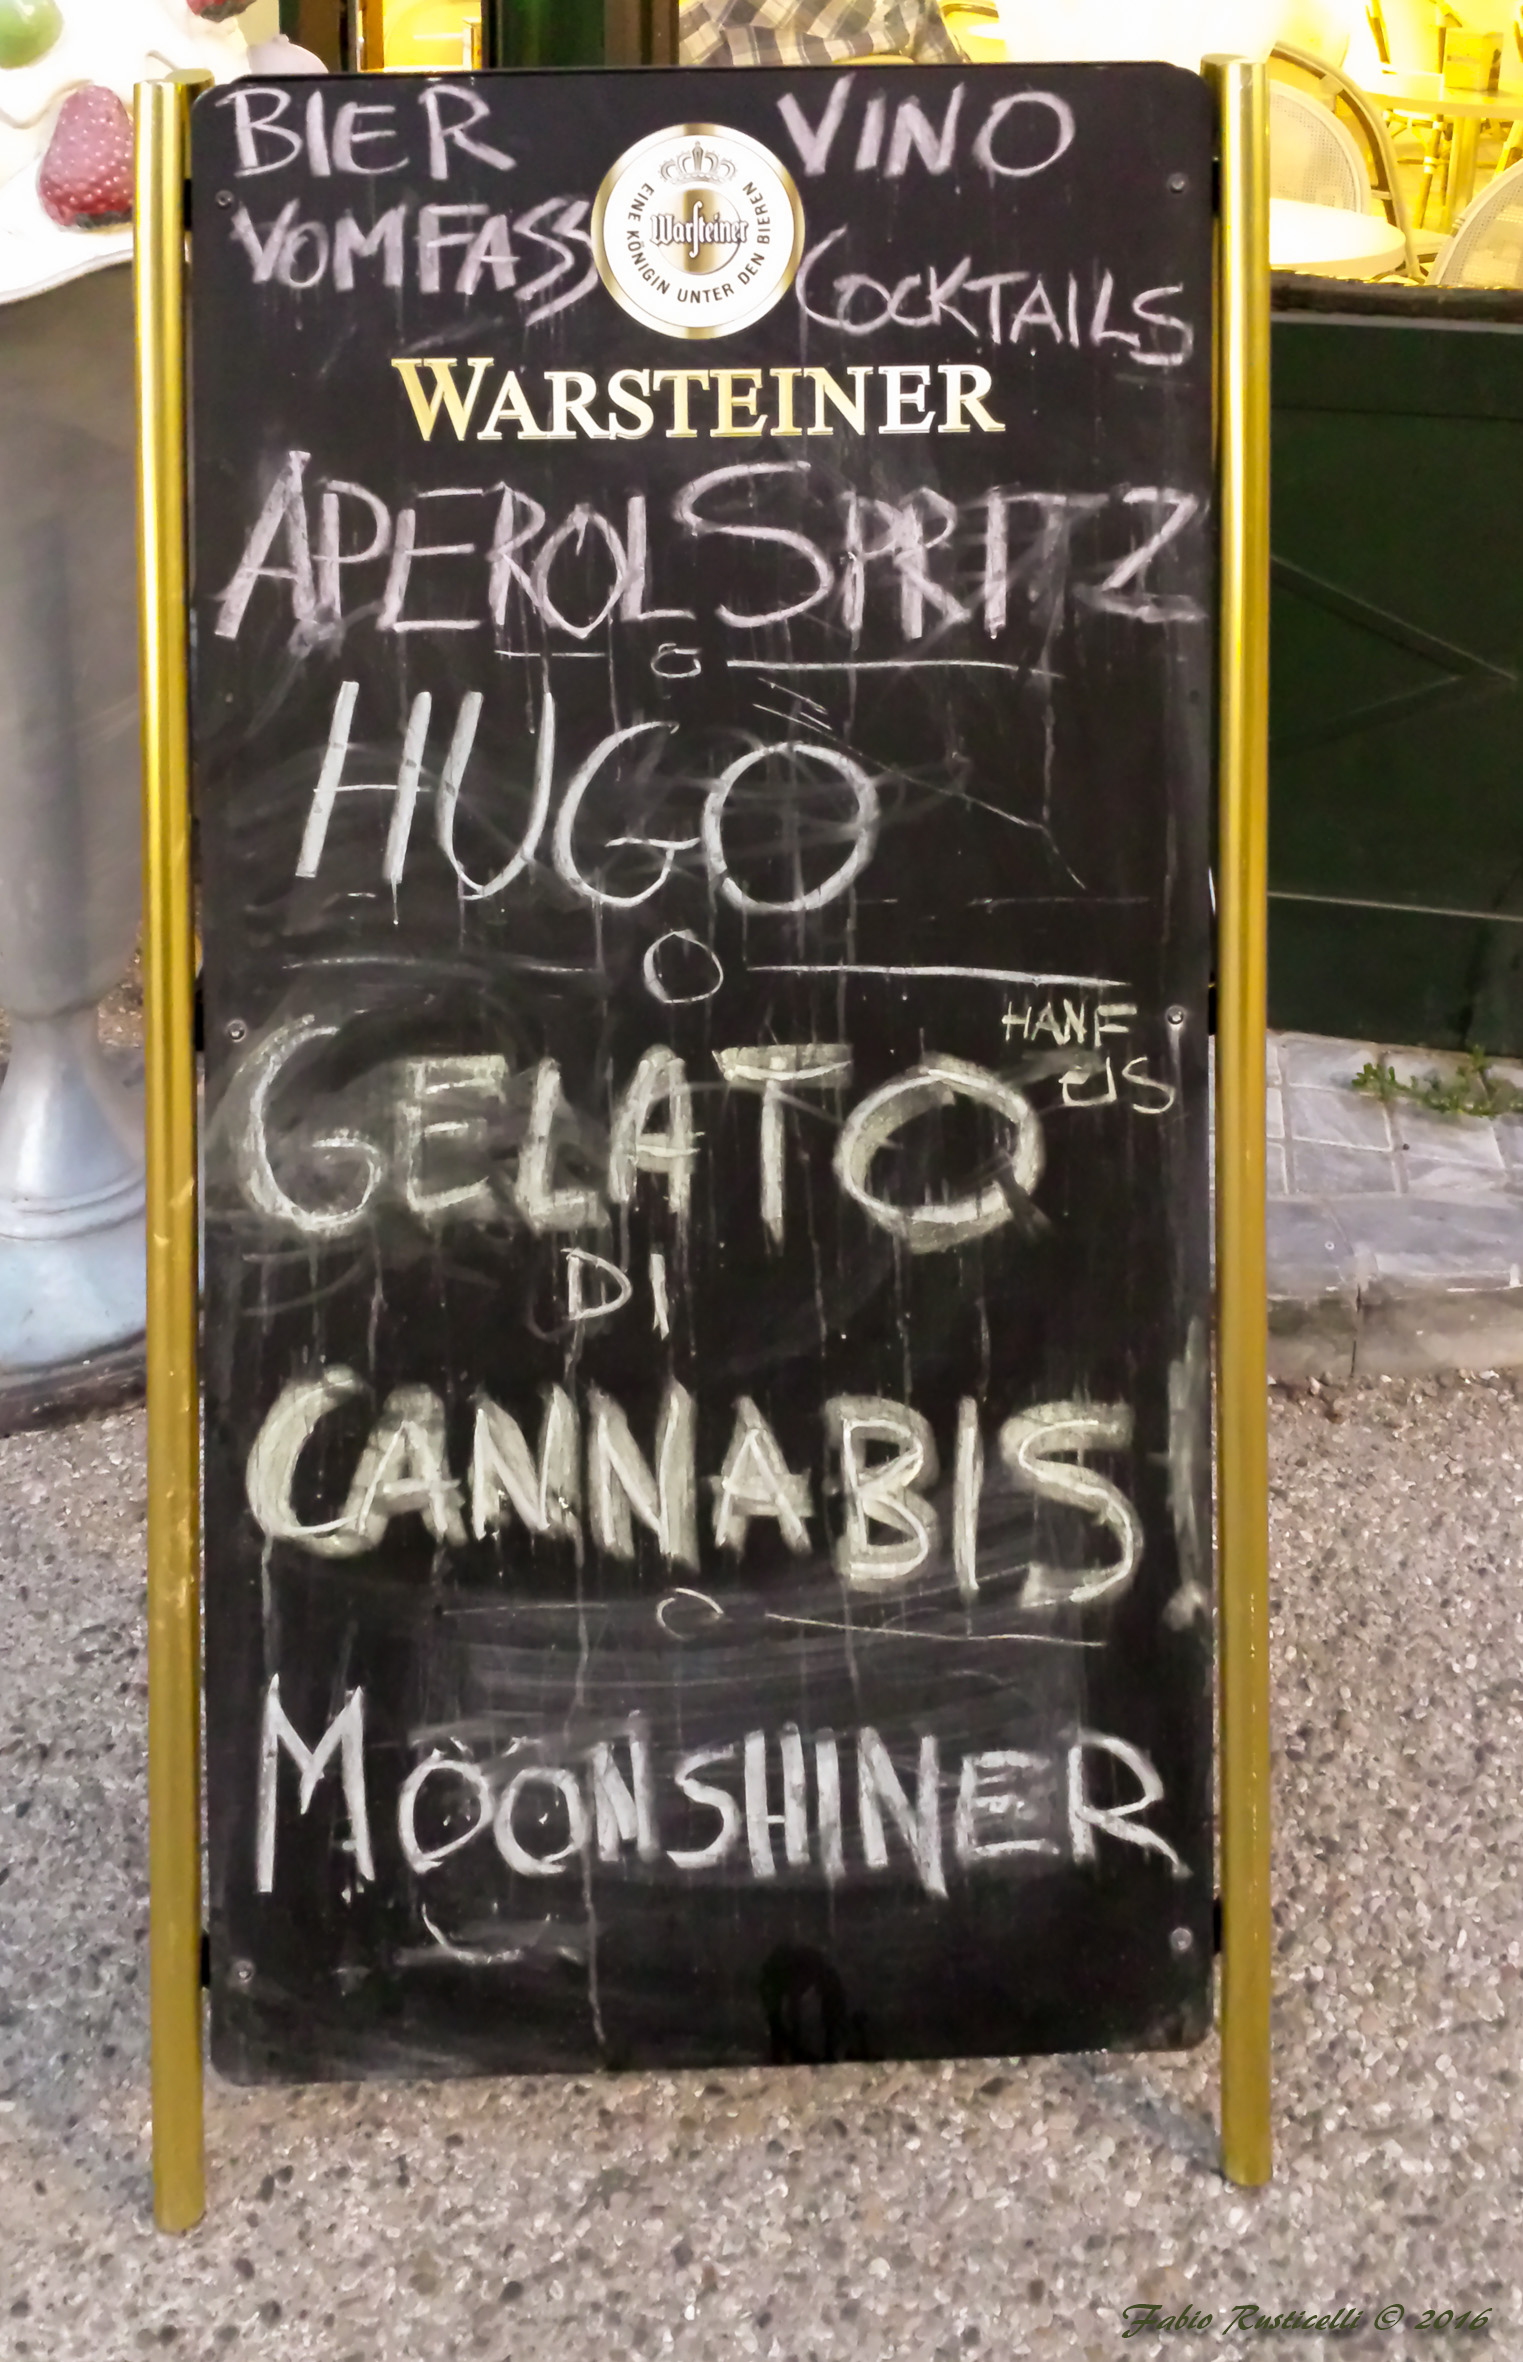 BIER
VOM FASS
VINO
COCKTAILS
EINE KÖNIGIN UNTER DEN BIEREN
Warsteiner
WARSTEINER
APEROL SPRITZ
HUGO
HANF
EIS
GELATO
DI
CANNABIS!
MOONSHINER
Fabio Rusticelli © 2016